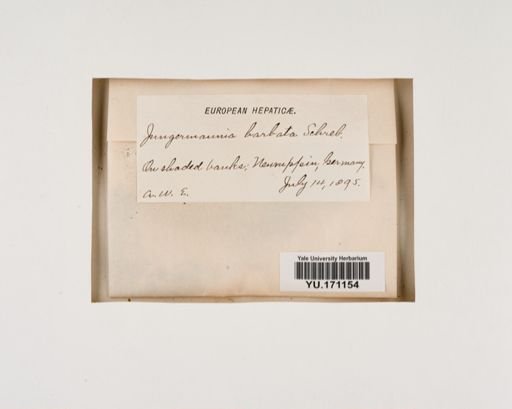 EUROPEAN HEPATICÆ.
Jungermannia barbata Schreb.
On shaded banks; Neuruppin, Germany.
July 14, 1895.
A. W. E.
Yale University Herbarium
YU.171154